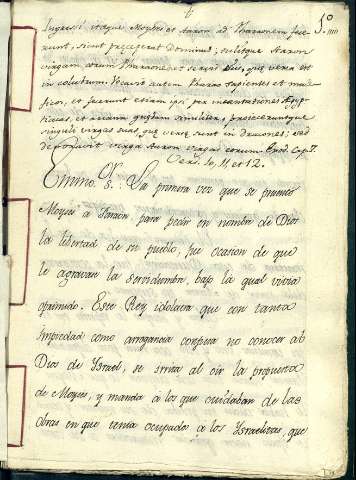 t
5º
Ingressi itaque Moyses et Aaron ad Pharaonem fece-
runt, sicut præceperat Dominus; tulitque Aaron
virgam coram Pharaone et servis ejus, quæ versa est
in colubrum. Vocavit autem Pharao sapientes et male-
ficos, et fecerunt etiam ipsi per incantationes Ægyp-
tiacas, et arcana quædam similiter, projeceruntque
singuli virgas suas, quæ versæ sunt in dracones; sed
devoravit virga Aaron virgas eorum. Exod. Cap. 7.
Vers. 10, 11, et 12.
Emmo. Sr. La primera vez que se presentó
Moyses à Faraòn para pedir en nombre de Dios
la libertad de su pueblo, fue ocasion de que
le agravan la servidumbre, bajo la qual vivia
oprimido. Este Rey idolatra que con tanta
impiedad como arrogancia confiesa no conocer al
Dios de Israel, se irrita al oir la propuesta
de Moyses, y manda à los que cuidaban de las
obras en que tenia ocupado à los Israelitas, que